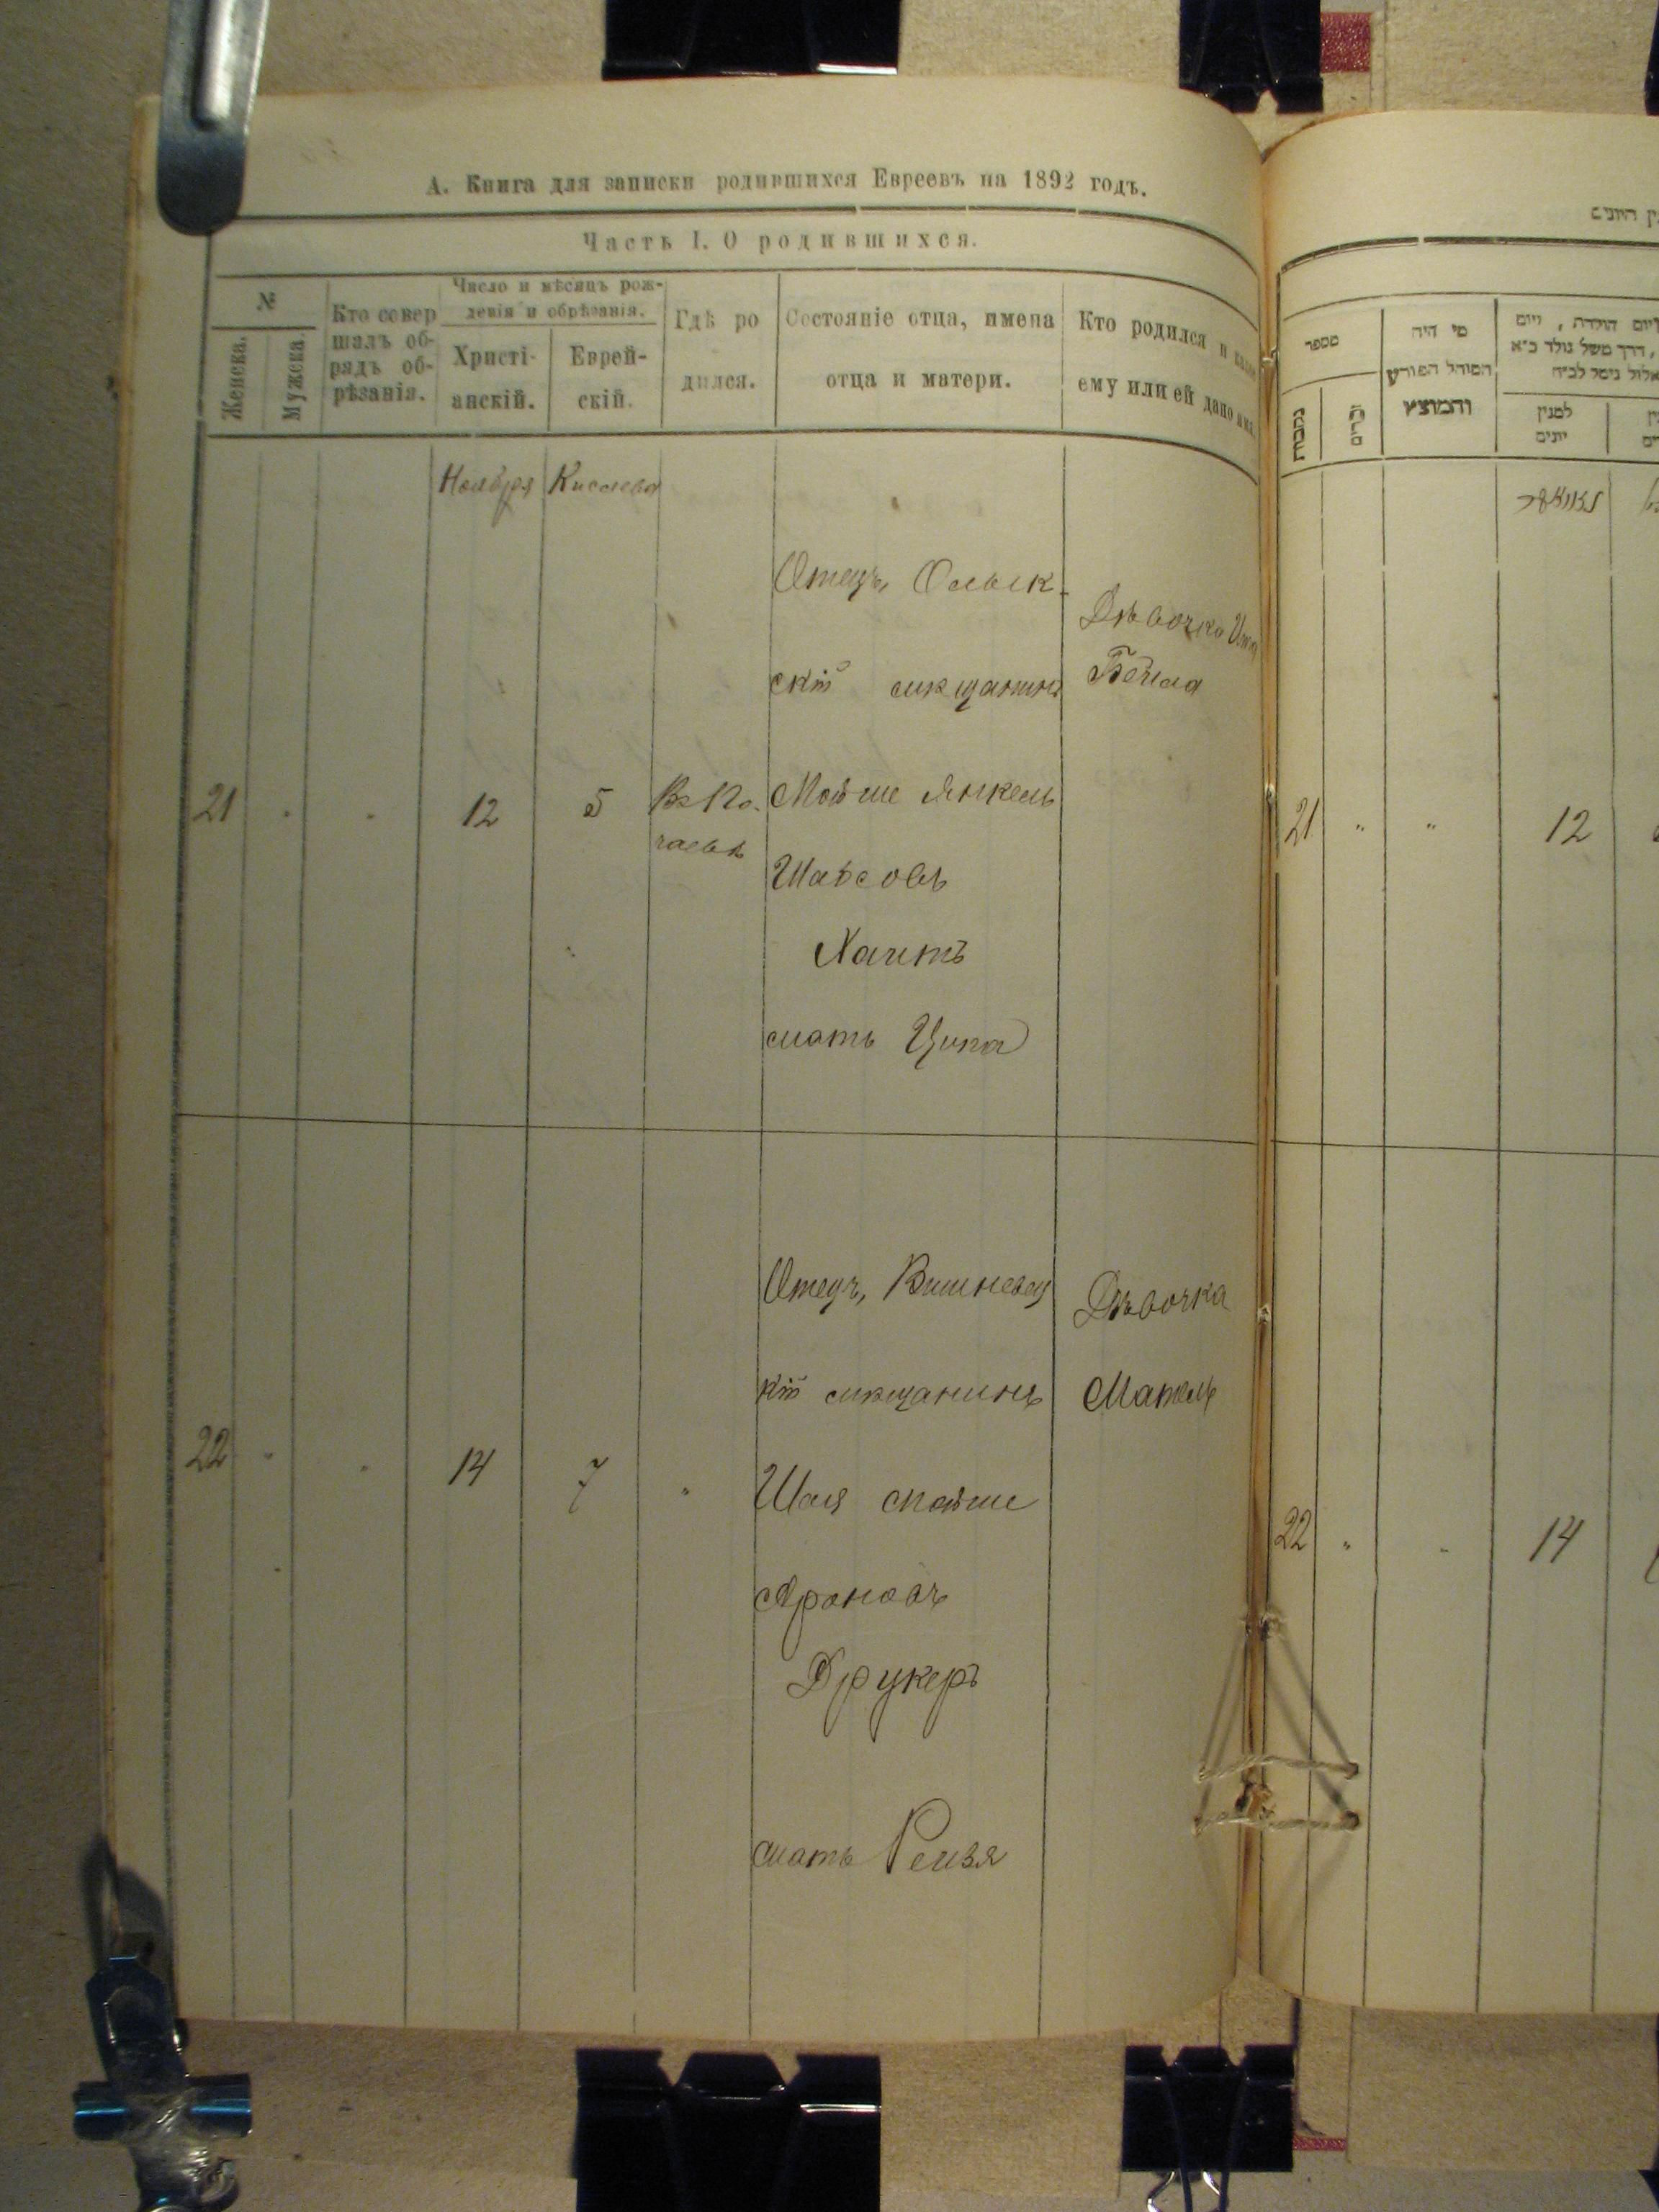 А. Книга для записки родившихся Евреевъ на 1892 годъ.
Часть I. О родившихся.
№
Женска.
Мужеска.
Кто совер
шалъ об-
рядъ об-
рѣзанія.
Число и мѣсяцъ рож-
денія и обрѣзанія.
Христі-
анскій.
Еврей-
скій.
Гдѣ ро
дился.
Состояніе отца, имена
отца и матери.
Кто родился и какое
ему или ей дано имя.
Ноября Кислева
21 " " 12 5
Въ По-
чаевѣ
Отецъ, Олык-
скій мѣщанинъ
Мойше Янкель
Шавсовъ
Хаитъ
мать Ципа
Дѣвочка
Бейла
22 " " 14 7 "
Отецъ, Вишневец
кій мѣщанинъ
Шая Мойше
Ароновъ
Друкеръ
мать Рейзя
Дѣвочка
Матель
היונים
מספר
נקבות
זכרים
מי היה
המוהל הפורע
והמוצץ
יום הולדת, ויום
למנין
יונים
21 " " 12
22 " " 14